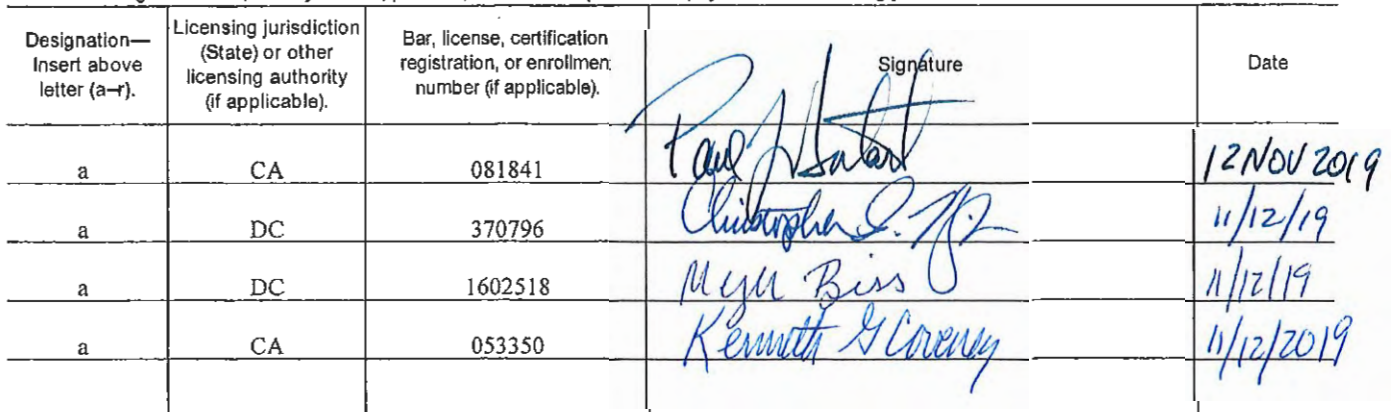 Designation— Insert above letter (a–r). Licensing jurisdiction (State) or other licensing authority (if applicable). Bar, license, certification registration, or enrollment number (if applicable). Signature Date
a CA 081841 Paul 12 NOV 2019
a DC 370796 Christopher S. 11/12/19
a DC 1602518 Biss 11/12/19
a CA 053350 Kenneth G Coveney 11/12/2019